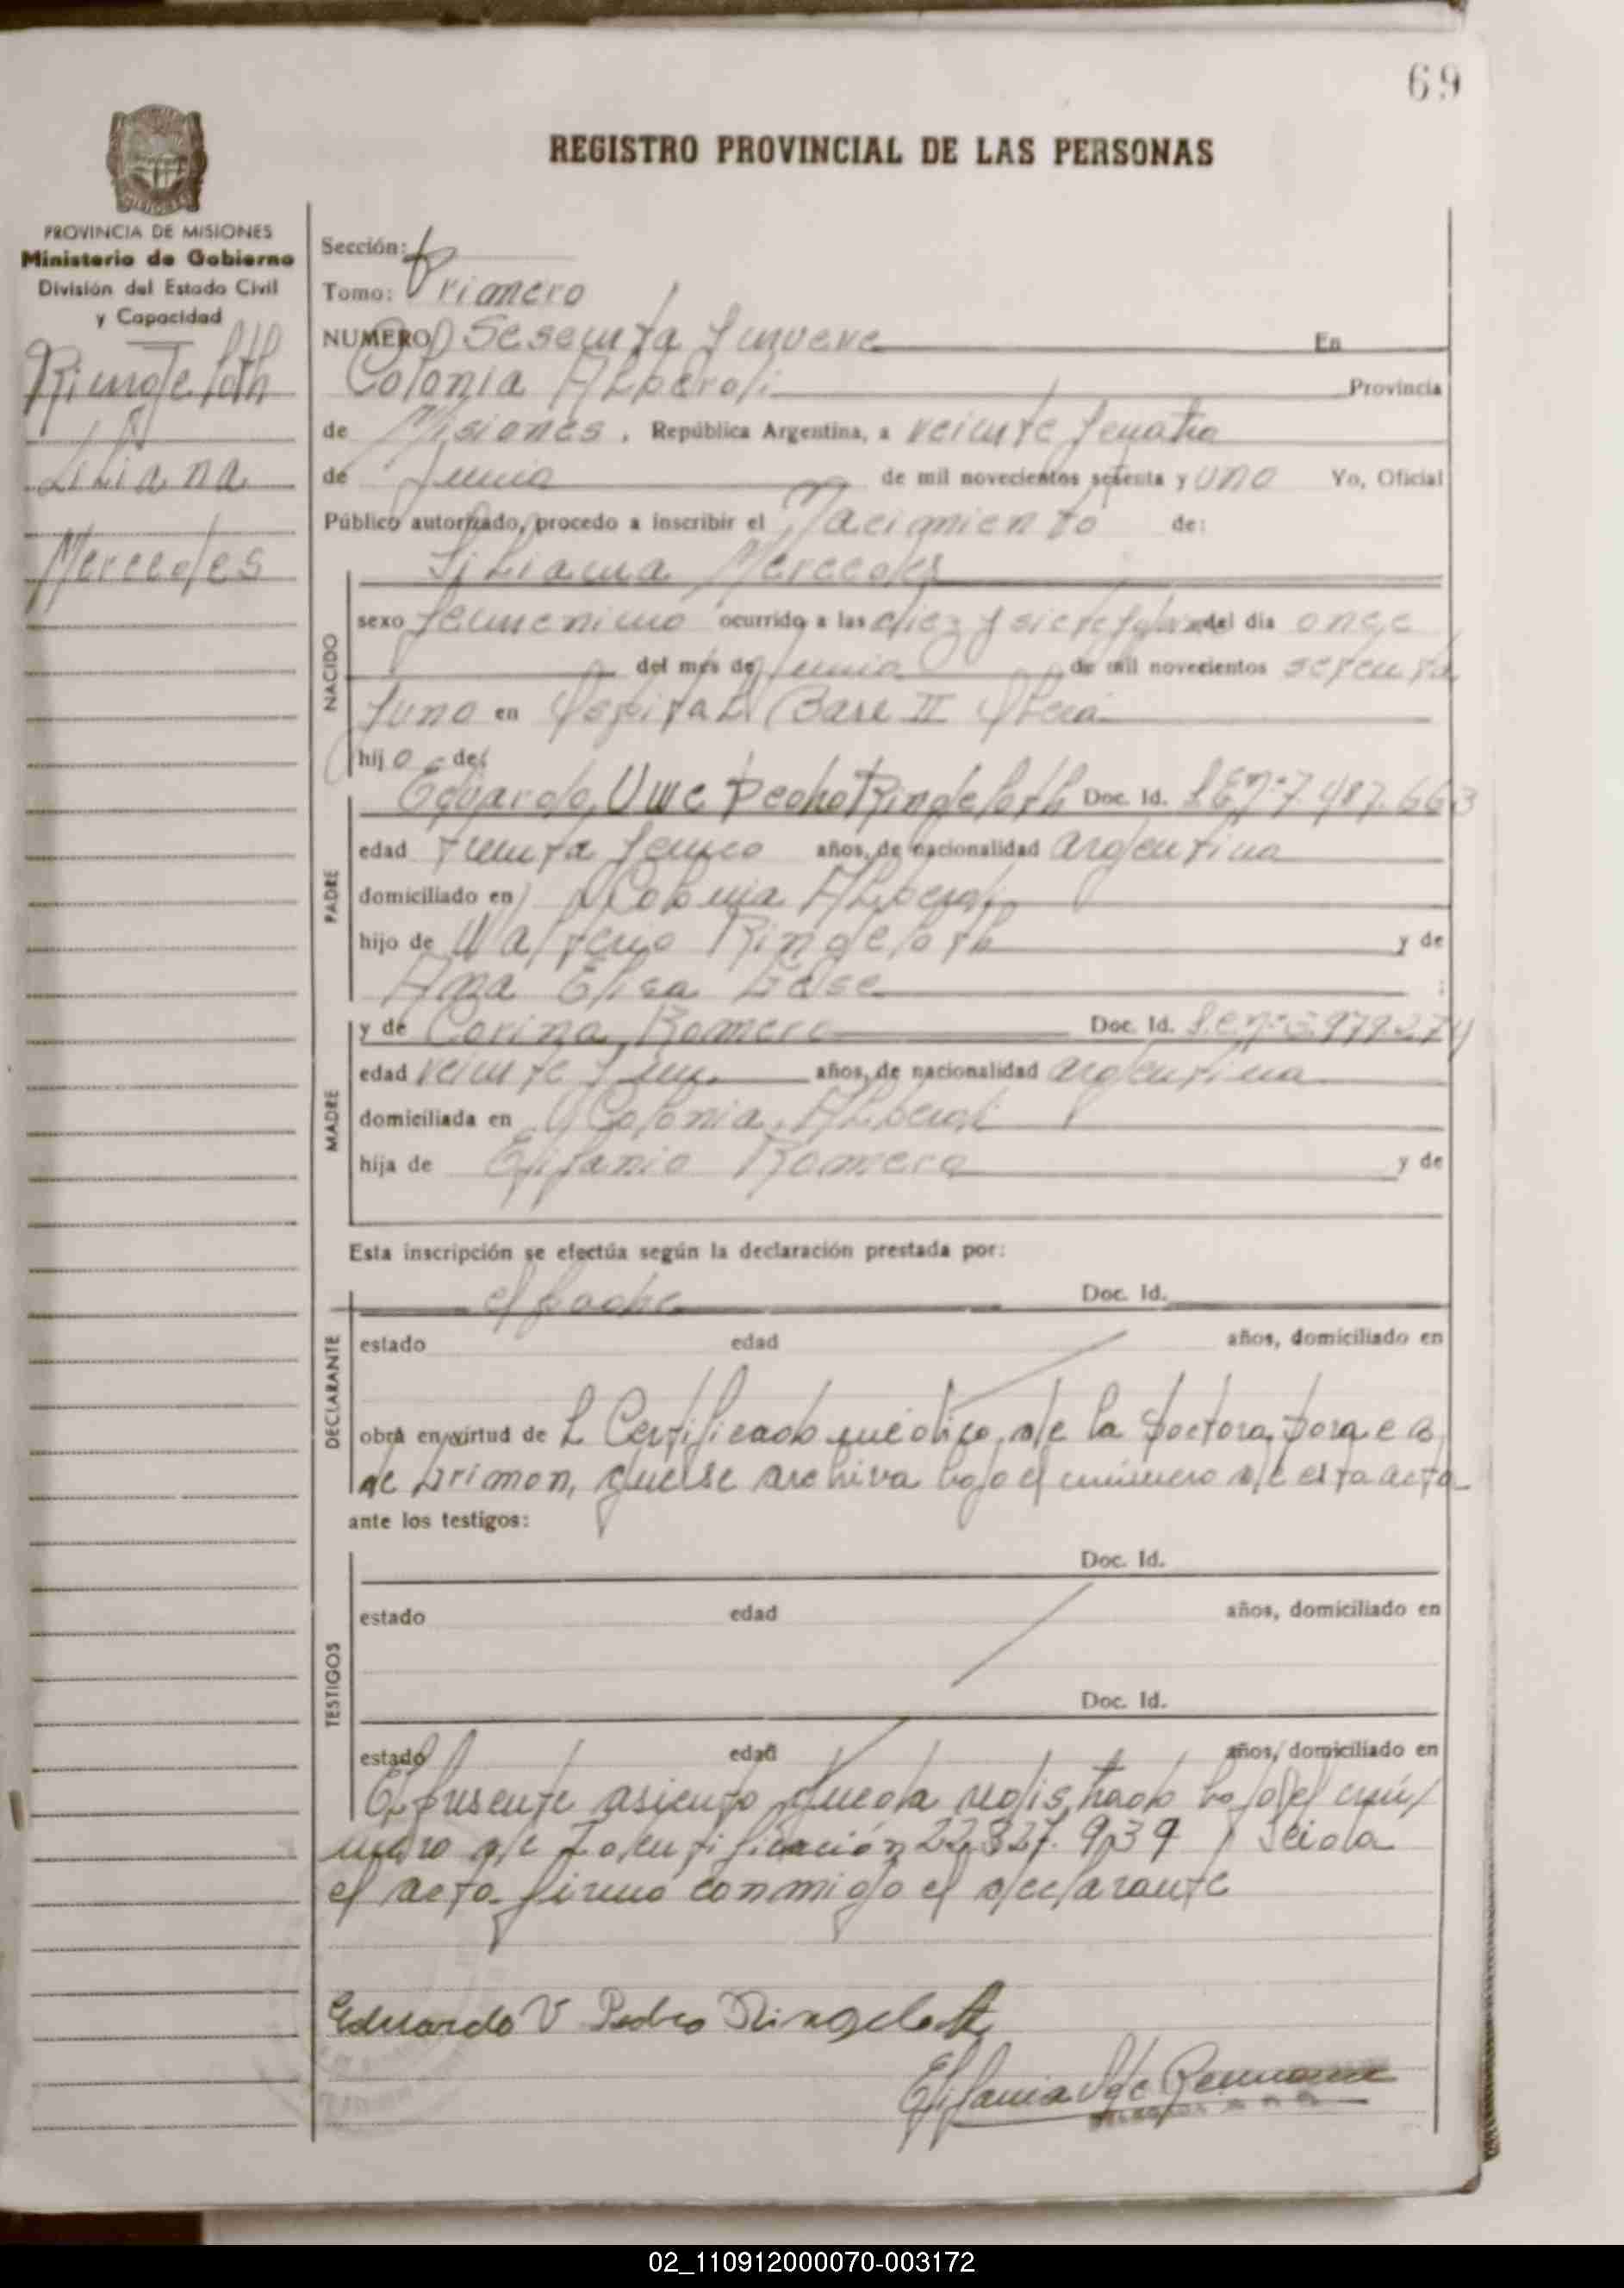 69
REGISTRO PROVINCIAL DE LAS PERSONAS
PROVINCIA DE MISIONES
Ministerio de Gobierno
División del Estado Civil
y Capacidad
Ringeloth
Liliana
Mercedes
Sección:
Tomo: Primero
NUMERO Sesenta y nueve En
Colonia Alberdi Provincia
de Misiones, República Argentina, a veinte y cuatro
de Junio de mil novecientos setenta y uno Yo, Oficial
Público autorizado, procedo a inscribir el Nacimiento de:
Liliana Mercedes
NACIDO
sexo femenino ocurrido a las diez y siete del día once
del mes de Junio de mil novecientos setenta
y uno en Hospital Base II Oberá
hij de:
PADRE
Eduardo Uwe Pedro Ringeloth Doc. Id. L.E.Nº 7.487.663
edad treinta y cinco años, de nacionalidad argentina
domiciliado en Colonia Alberdi
hijo de Walterio Ringeloth y de
Ana Elisa ;
MADRE
y de Corina Romero Doc. Id.
edad veinte y un años, de nacionalidad argentina
domiciliada en Colonia Alberdi
hija de Epifanio Romero y de
Esta inscripción se efectúa según la declaración prestada por:
DECLARANTE
el padre Doc. Id.
estado edad años, domiciliado en
obra en virtud de L Certificado médico de la Doctora Dora e B
de que se archiva bajo el número de esta acta
ante los testigos:
TESTIGOS
Doc. Id.
estado edad años, domiciliado en
Doc. Id.
estado edad años, domiciliado en
El presente asiento queda registrado bajo el nú
mero de Identificación 22.327.939 / Leida
el acta firmó conmigo el declarante
Eduardo U Pedro Ringeloth
Epifania de
02_110912000070-003172